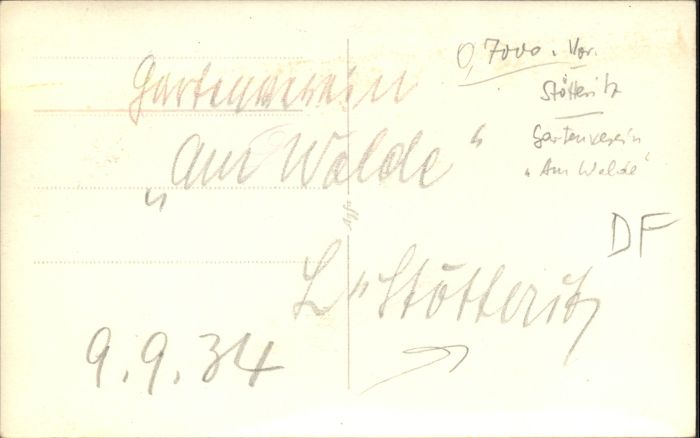 Gartenverein
„Am Walde"
L=Stötteritz
9.9.34
0,7000. Vor.
Stötteritz
Gartenverein
„Am Walde"
DF